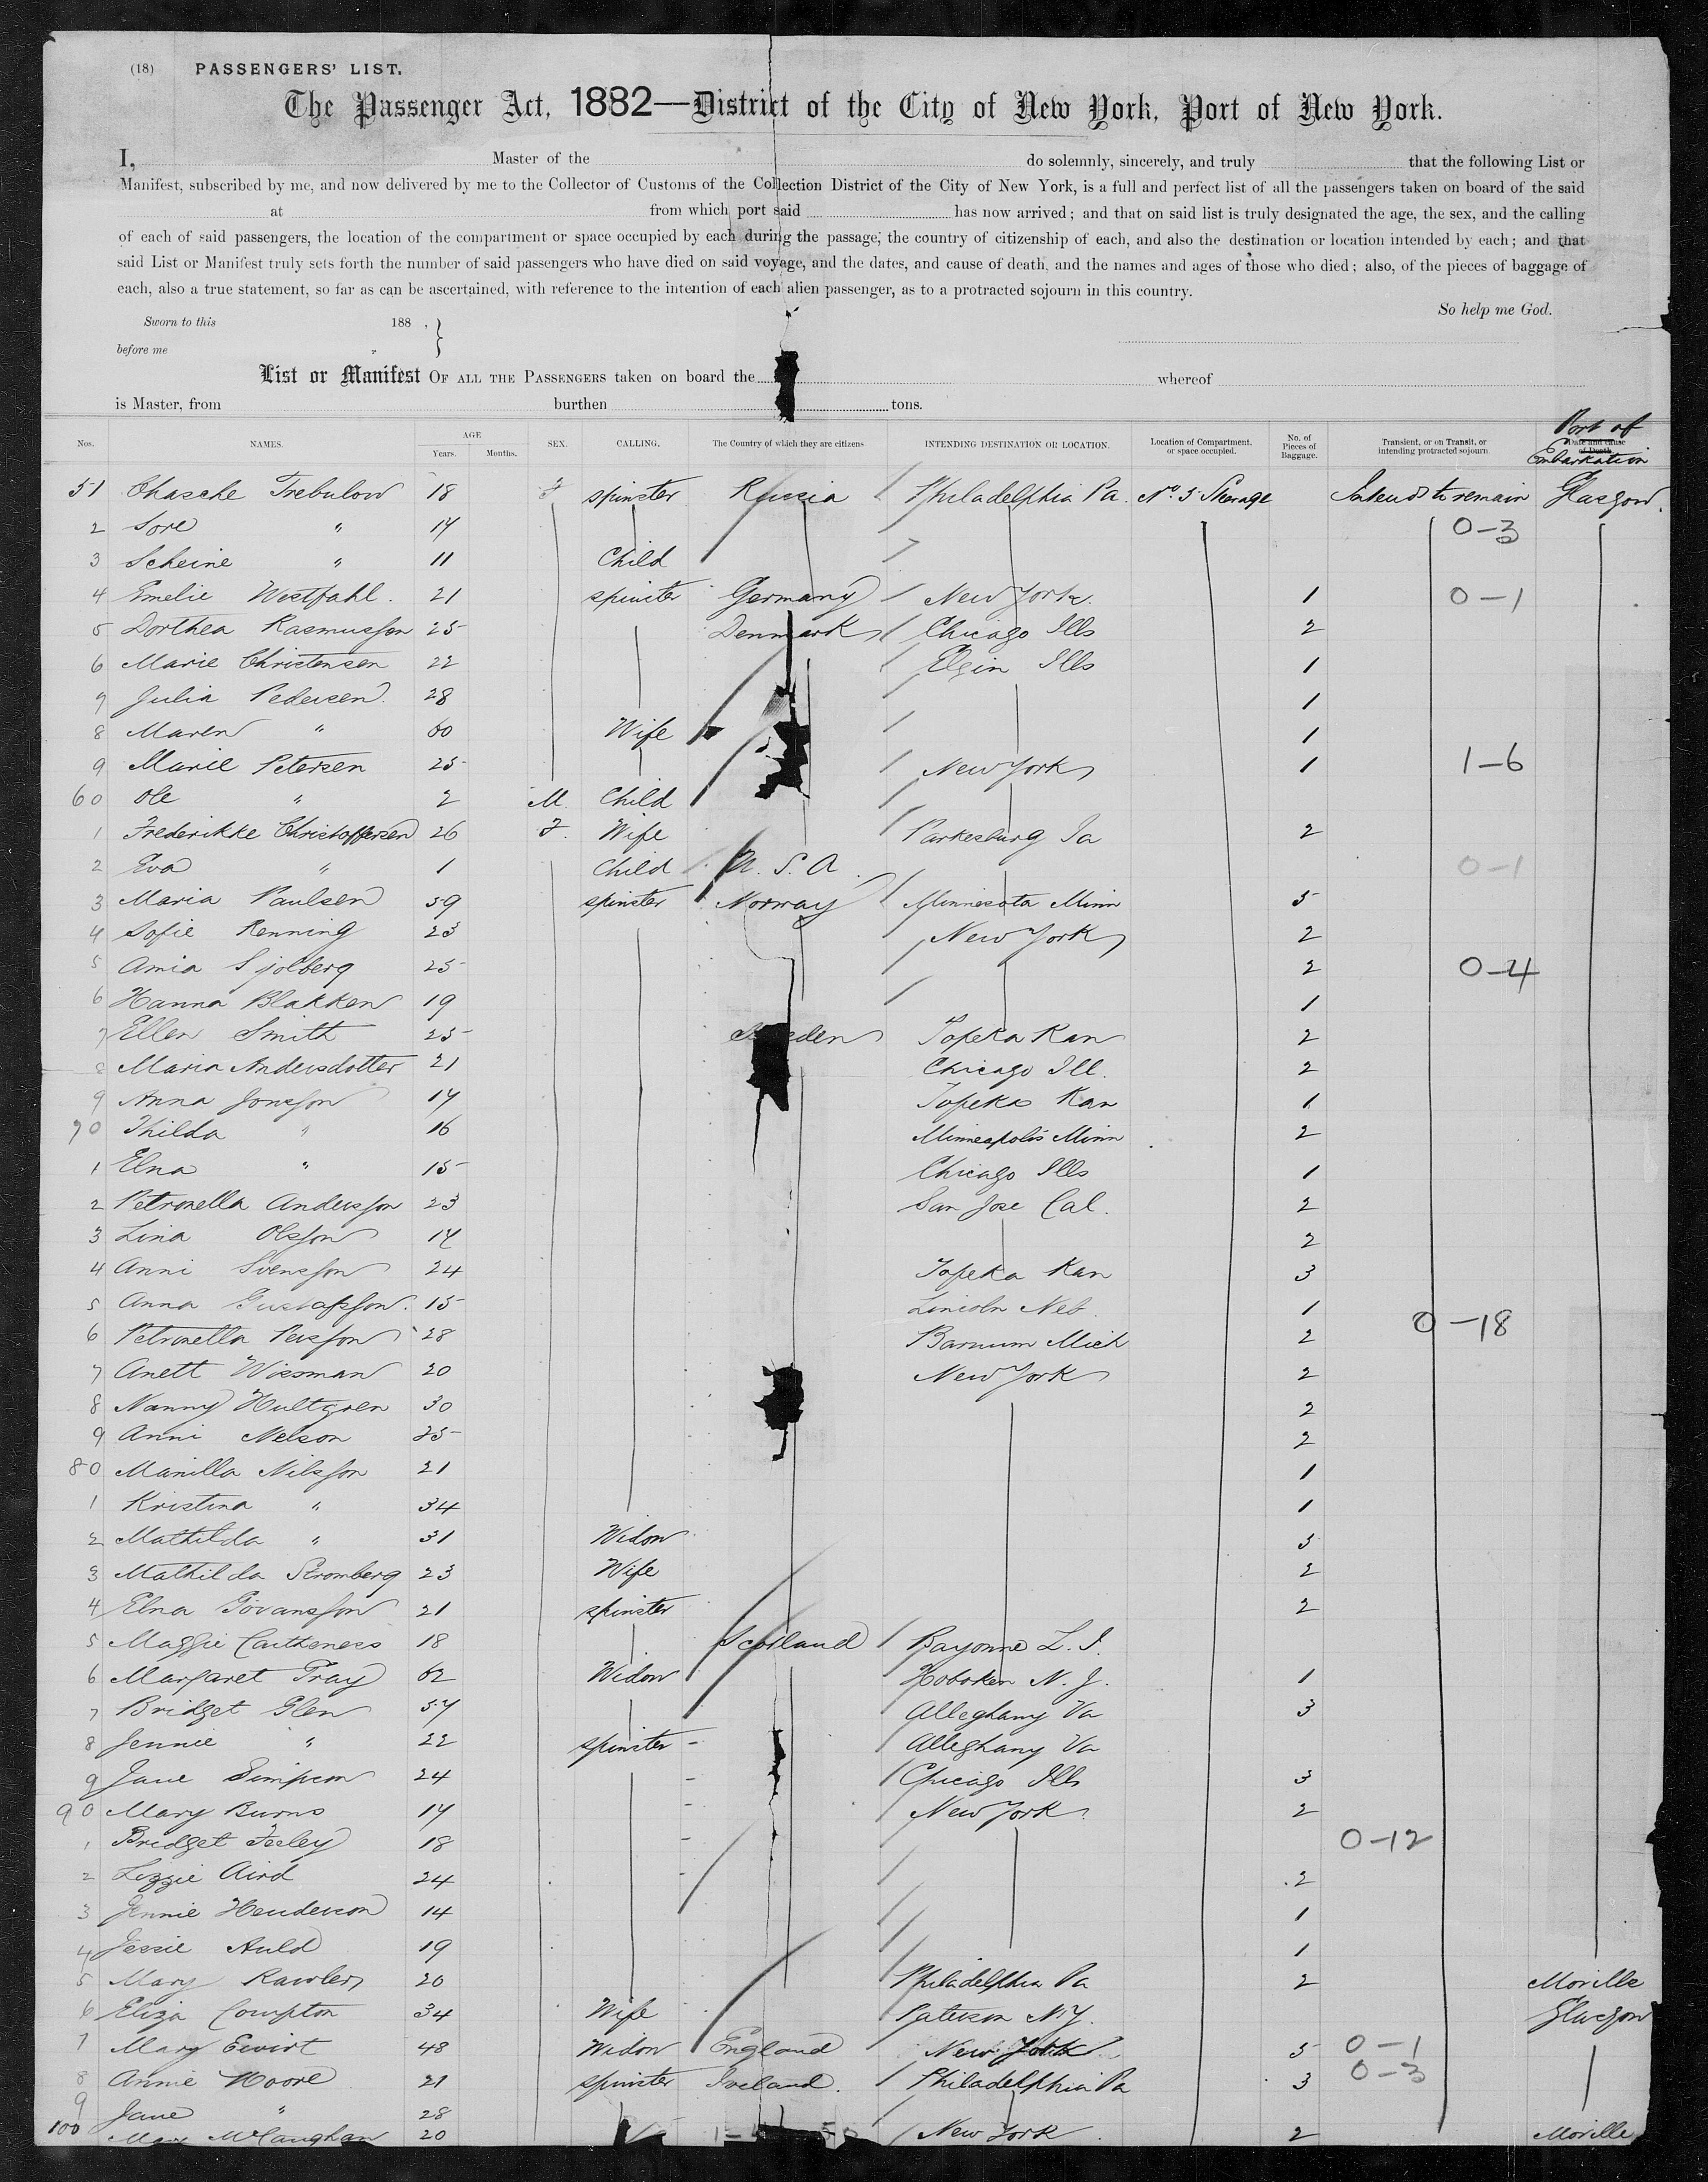 (18) PASSENGERS' LIST.
The Passenger Act, 1882—District of the City of New York, Port of New York.
I, Master of the do solemnly, sincerely, and truly that the following List or
Manifest, subscribed by me, and now delivered by me to the Collector of Customs of the Collection District of the City of New York, is a full and perfect list of all the passengers taken on board of the said
at from which port said has now arrived; and that on said list is truly designated the age, the sex, and the calling
of each of said passengers, the location of the compartment or space occupied by each during the passage, the country of citizenship of each, and also the destination or location intended by each; and that
said List or Manifest truly sets forth the number of said passengers who have died on said voyage, and the dates, and cause of death, and the names and ages of those who died; also, of the pieces of baggage of
each, also a true statement, so far as can be ascertained, with reference to the intention of each alien passenger, as to a protracted sojourn in this country.
So help me God.
Sworn to this 188 ,
before me
List or Manifest OF ALL THE PASSENGERS taken on board the whereof
is Master, from burthen tons.
Port of Embarkation
Nos. NAMES. AGE Years. Months. SEX. CALLING. The Country of which they are citizens INTENDING DESTINATION OR LOCATION. Location of Compartment. or space occupied. No. of Pieces of Baggage. Transient, or on Transit, or intending protracted sojourn Date and cause of Death
51 Chasche Trebulow 18 F spinster Russia Philadelphia Pa. No. 5 Steerage Intends to remain Glasgow.
2 Sore " 17 0-3
3 Scheine " 11 Child
4 Emelie Westfahl. 21 spinster Germany New York. 1 0-1
5 Dorthea Rasmussen 25 Denmark Chicago Ills 2
6 Marie Christensen 22 Elgin Ills 1
7 Julia Pedersen. 28 1
8 Maren " 60 Wife 1
9 Marie Petersen 25 New York 1 1-6
60 Ole " 2 M. Child
1 Frederikke Christoffersen 26 F. Wife Parkesburg Ia 2
2 Eva " 1 Child U. S. A. 0-1
3 Maria Paulsen 59 spinster Norway Minnesota Minn 5
4 Sofie Renning 23 New York 2
5 Amia Sjolberg 25 2 0-4
6 Hanna Blakken 19 1
7 Ellen Smith 25 Sweden Topeka Kan 2
8 Maria Andersdotter 21 Chicago Ill. 2
9 Anna Jonsson 17 Topeka Kan 1
70 Thilda " 16 Minneapolis Minn 2
1 Elna " 15 Chicago Ills 1
2 Petronella Andersson 23 San Jose Cal. 2
3 Lina Olsson 17 2
4 Anni Svensson 24 Topeka Kan 3
5 Anna Gustafsson. 15 Lincoln Neb. 1
6 Petronella Persson 28 Barnum Mich 2 0-18
7 Anett Wiesman 20 New York 2
8 Nanny Hultgren 30 2
9 Anni Nelson 25 2
80 Manilla Nilsson 21 1
1 Kristina " 34 1
2 Mathilda " 31 Widow 5
3 Mathilda Stromberg 23 Wife 2
4 Elna Govansson 21 spinster 2
5 Maggie Caitheness 18 Scotland Bayonne L. I.
6 Margaret Tray 62 Widow Hoboken N. J. 1
7 Bridget Glen 57 Alleghany Va 3
8 Jennie " 22 spinster Alleghany Va
9 Jane Simpson 24 Chicago Ills 3
90 Mary Burns 17 New York 2
1 Bridget Feeley 18 0-12
2 Lizzie Aird 24 2
3 Jennie Henderson 14 1
4 Jessie Auld 19 1
5 Mary Rawley 20 Philadelphia Pa 2 Moville
6 Eliza Compton 34 Wife Paterson N.Y. Glasgow
7 Mary Ewirt 48 Widow England New York 5 0-1
8 Annie Moore 21 spinster Ireland. Philadelphia Pa 3 0-3
9 Jane " 28
100 Mary McCaughan 20 New York 2 Moville